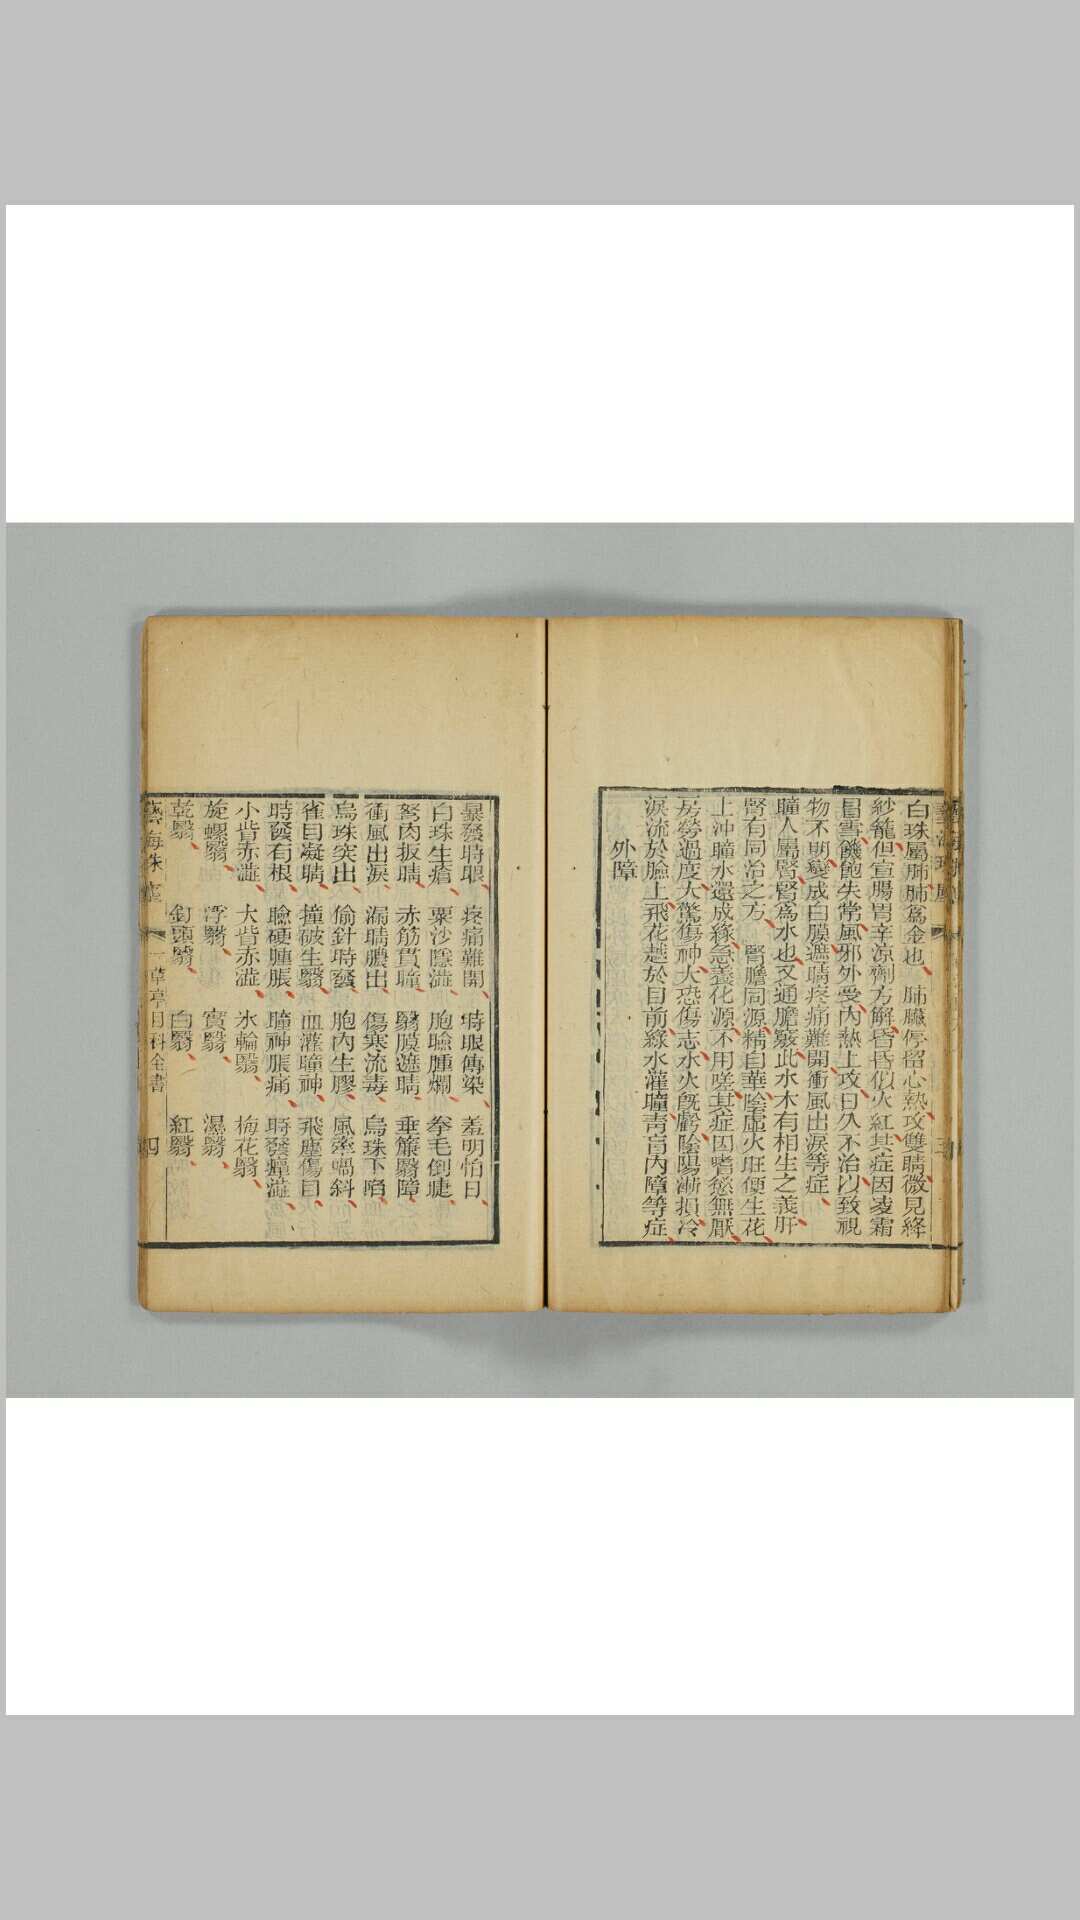 白珠屬肺肺爲金也 肺臟停留心熱攻雙睛微見絳
紗籠但宣腸胃辛涼劑方解昏昏似火紅其症因凌霜
冒雪饑飽失常風邪外受內熱上攻日久不治以致視
物不明變成白膜遮睛疼痛難開衝風出淚等症
瞳人屬腎腎爲水也又通膽竅此水木有相生之義肝
腎有同治之方 腎膽同源精自華陰虛火旺便生花
上沖瞳水還成綠急養化源不用嗟其症因嗜慾無厭
房勞過度大驚傷神大恐傷志水火旣虧陰陽漸損冷
淚流於臉上飛花趂於目前綠水灌瞳靑盲內障等症
外障
暴發時眼 疼痛難開 時眼傳染 羞明怕日
白珠生瘡 粟沙隱澁 胞瞼腫爛 拳毛倒睫
努肉扳睛 赤筋貫瞳 翳膜遮睛 垂簾翳障
衝風出淚 漏睛膿出 傷寒流毒 烏珠下陷
烏珠突出 偷針時發 胞內生膠 風牽喎斜
雀目凝睛 撞破生翳 血灌瞳神 飛塵傷目
時發有根 瞼硬腫脹 瞳神脹痛 時發癢澁
小眥赤澁 大眥赤澁 氷輪翳 梅花翳
旋螺翳 浮翳 實翳 濕翳
乾翳 釘頭翳 白翳 紅翳
藝海珠塵 一草亭目科全書 四